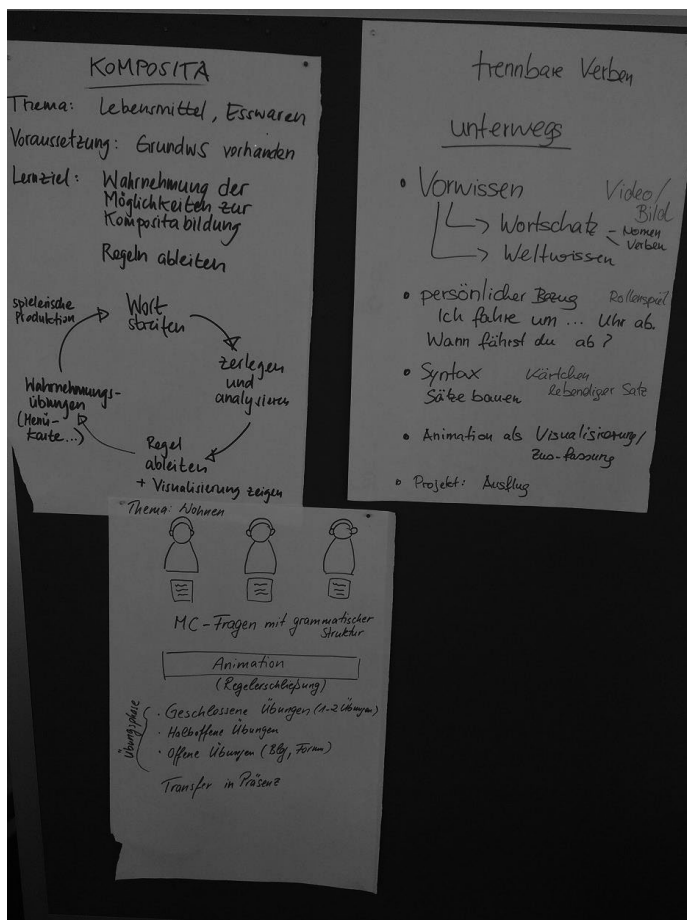 KOMPOSITA
Thema: Lebensmittel, Esswaren
Voraussetzung: Grundws vorhanden
Lernziel: Wahrnehmung der
Möglichkeiten zur
Kompositabildung
Regeln ableiten
spielerische
Produktion
Wort
streifen
zerlegen
und
analysieren
Regel
ableiten
+ Visualisierung zeigen
Wahrnehmungs-
übungen
(Menü-
karte...)
trennbare Verben
unterwegs
• Vorwissen Video/
Bild
Wortschatz - Nomen
Verben
Weltwissen
• persönlicher Bezug Rollenspiel
Ich fahre um ... Uhr ab.
Wann fährst du ab?
• Syntax Kärtchen
Sätze bauen lebendiger Satz
• Animation als Visualisierung/
Zus-fassung
• Projekt: Ausflug
Thema: Wohnen
MC-Fragen mit grammatischer
Struktur
Animation
(Regelerschließung)
Übungsphase
· Geschlossene Übungen (1-2 Übungen)
· Halboffene Übungen
· Offene Übungen (Blog, Forum)
Transfer in Präsenz